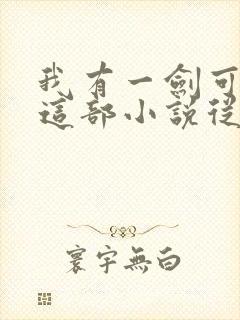 我有一劍可
這部小說從
寰宇無白